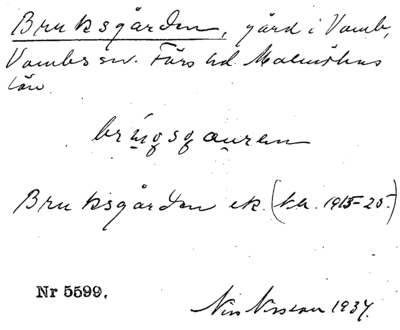 Bruksgården, gård i Vomb,
Vombs sn. Färs hd. Malmöhus
län.
Bruksgården ek. (ka. 1915-25.)
Nr 5599.
Nils Nilsson 1937.